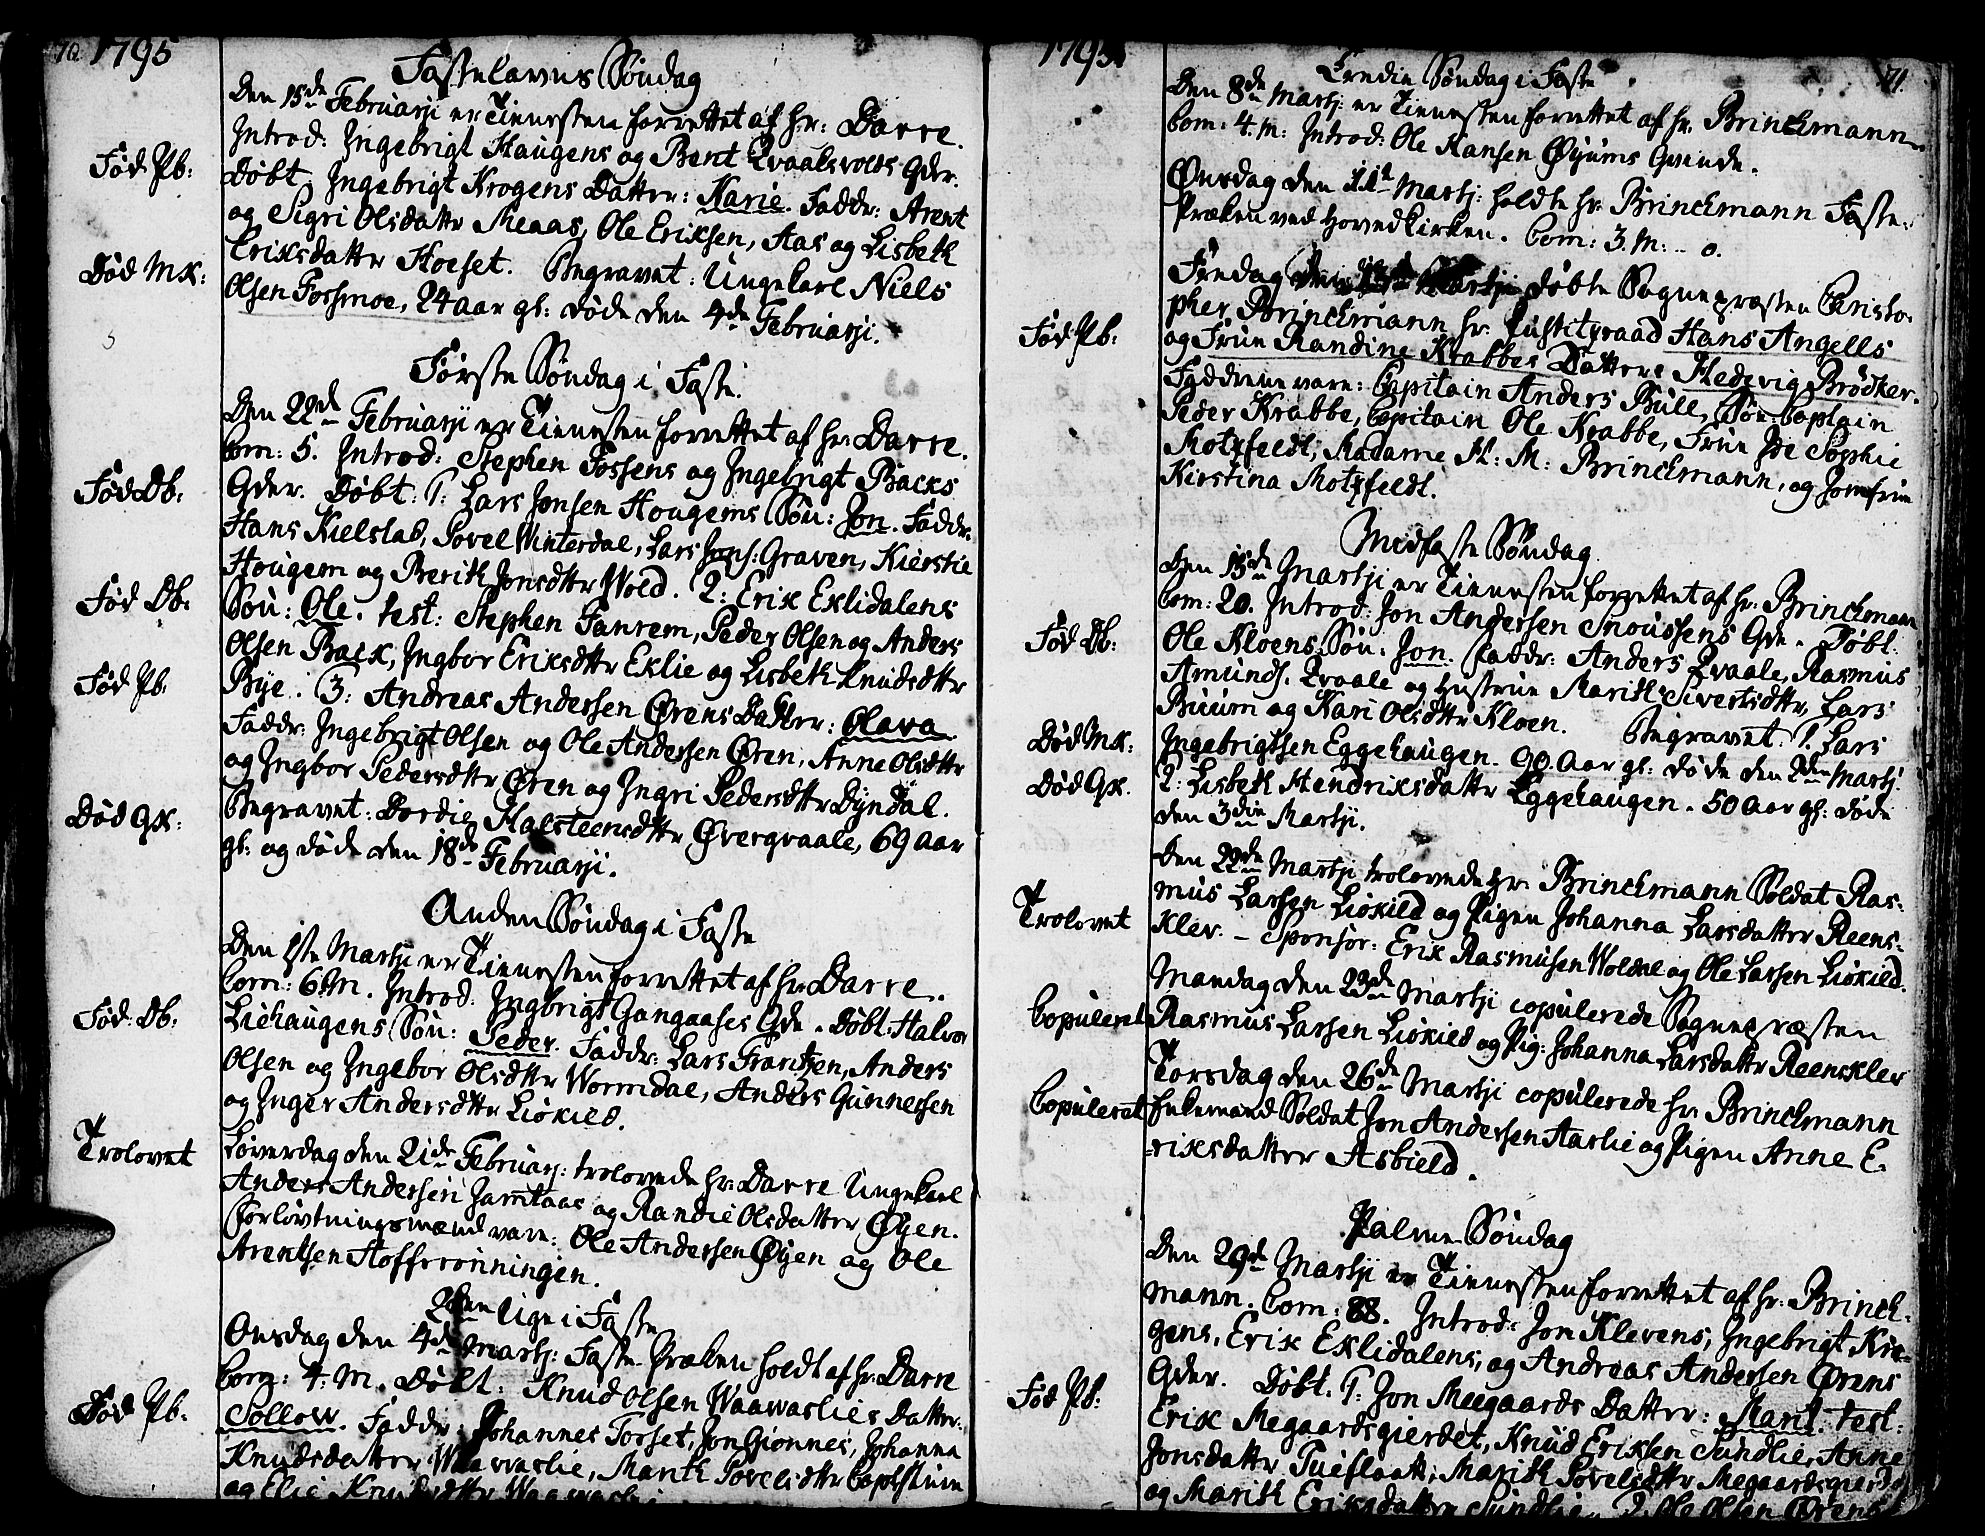 70 1795
Fastelavns Søndag
Den 15de Februarji er Tienesten forrettet af hr: Darre.
Introd: Ingebrigt Haugens og Bent Qvaalsvolds Qder.
Fød Pb:
Døbt Ingebrigt Krogens Datter: Karie. Faddr: Arent
og Sigri Olsdattr Meaas, Ole Eriksen, Aas og Lisbeth
Død MK:
Eriksdattr Hoeset. Begravet: Ungekarl Niels
Olsen Fossmoe, 24 aar gl: døde den 4de Februarji.
Første Søndag i Faste.
Den 22de Februarji er Tienesten forrettet af hr: Darre.
Com: 5. Introd: Stephen Fossens og Ingebrigt Backs
Fød Db:
Qder. Døbt: 1: Lars Jonsen Hougems Søn: Jon. Faddr:
Hans Kielstad, Sovel Winterdal, Lars Jons: Graven, Kierstie
Hougem og Berith Jonsdttr Wold. 2: Erik Eklidalens
Fød Db:
Søn: Ole. test: Stephen Fanrem, Peder Olsen og Anders
Olsen Back, Ingbor Eriksdttr Eklie og Lisbeth Knudsdttr
Fød Pb.
Bye. 3: Andreas Andersen Ørens Datter: Olava
Faddr: Ingebrigt Olsen og Ole Andersen Øren, Anne Olsdttr
og Ingbor Pedersdttr Øren og Ingri Pedersdttr Dyndal.
Død Qk:
Begravet: Dordie Halsteensdttr Øvergvaale, 69 aar
gl: og døde den 18de Februarji.
Anden Søndag i Faste
Den 1ste Martji er Tienesten forrettet af hr: Darre.
Com: 6 M. Introd: Ingbrigt Gangaases Qde. Døbt: Halvor
Fød Db:
Liehaugens Søn: Peder. Faddr: Lars Frantzen, Anders
Olsen og Ingebor Olsdttr Wormdal, Anders Gunnersen
og Inger Andersdttr Liøkild.
Trolovet
Løverdag den 21de Februarj: trolovede hr: Darre Ungekarl
Anders Andersen Jamtaas og Randie Olsdatter Øyen.
Forlovtningsmænd vare: Ole Andersen Øyen og Ole
Arentsen Hoffsrønningen.
2den Uge i Faste
Onsdag den 4de Martj: Faste-Præken holdt af hr: Darre
Com: 4. M. Døbt: Knud Olsen Waawaslies Datter:
Fød Pb.
Sollow. Faddr: Johannes Forset, Jon Gionnes, Johanna
Knudsdatter Waawaslie, Marith Sovelsdttr
og Elie Knudsdttr Waawaslie
1795. 71.
Tredie Søndag i Faste
Den 8de Martj: er Tienesten forrettet af hr. Brinckmann.
Com: 4. M: Introd: Ole Hansen Øyums Qvinde.
Onsdag den 11te Martj: holdte hr. Brinckmann Faste-
Præken ved Hovedkirken. Com: 3. M: - 0.
Fredag den Martji døbte Sognepræsten Christo-
pher Brinckmann hr. Justitsraad Hans Angells
Fød Pb:
og Frue Randine Krabbes Datter: Hedevig Brødker.
Faddrene vare: Capitain Anders Bull, Søe-Captain
Peder Krabbe, Capitain Ole Krabbe, Frue Ide Sophie
Motzfeldt, Madame M: M: Brinckmann, og Jomfrue
Kirstina Motzfeldt.
Midfaste Søndag.
Den 15de Martji er Tienesten forrettet af hr: Brinckmann
Com: 20. Introd: Jon Andersen Snoussens Qde. Døbt:
Fød Db:
Ole Kloens Søn: Jon. Faddr: Anders Qvaale, Rasmus
Amunds. Qvaale og Hustrue Marith Sivertsdttr, Lars
Buum og Kari Olsdttr Kloen. Begravet: 1. Lars
Død MK:
Ingebrigtsen Eggehaugen. 90 Aar gl: døde den 2den Martj:
Død Qk.
2: Lisbeth Hendriksdattr Eggehaugen. 50 aar gl: døde
den 3die Martji.
Den 22de Martji trolovede hr. Brinckmann Soldat Ras-
mus Larsen Liøkild og Pigen Johanna Larsdatter Reens-
Trolovet
klev. - Sponsor: Erik Rasmusen Woldal og Ole Larsen Liøkild.
Mandag den 23de Martji copulerede Sognepræsten
Copuleret
Rasmus Larsen Liøkild og Pig: Johanna Larsdattr Reensklev
Torsdag den 26de Martji copulerede hr. Brinckmann
Copuleret
Enkemand Soldat Jon Andersen Aarlie og Pigen Anne E-
riksdatter Asbield.
Palme Søndag
Den 29de Martji er Tienesten forrettet af hr: Brinck-
mann. Com: 88. Introd: Jon Klevens, Ingebrigt Kro-
gens, Erik Eklidalens, og Andreas Andersen Ørens
Fød Pb:
Qder. Døbt. 1: Jon Meegaards Datter: Marit. test:
Erik Megaardsgierdet, Knud Eriksen Sundlie, Anne
Jonsdatter Tueflaatt, Marith Sovelsdttr Megaardsgierdet
og Marith Eriksdatter Sundlie. 2. Ole Olsen Ørens